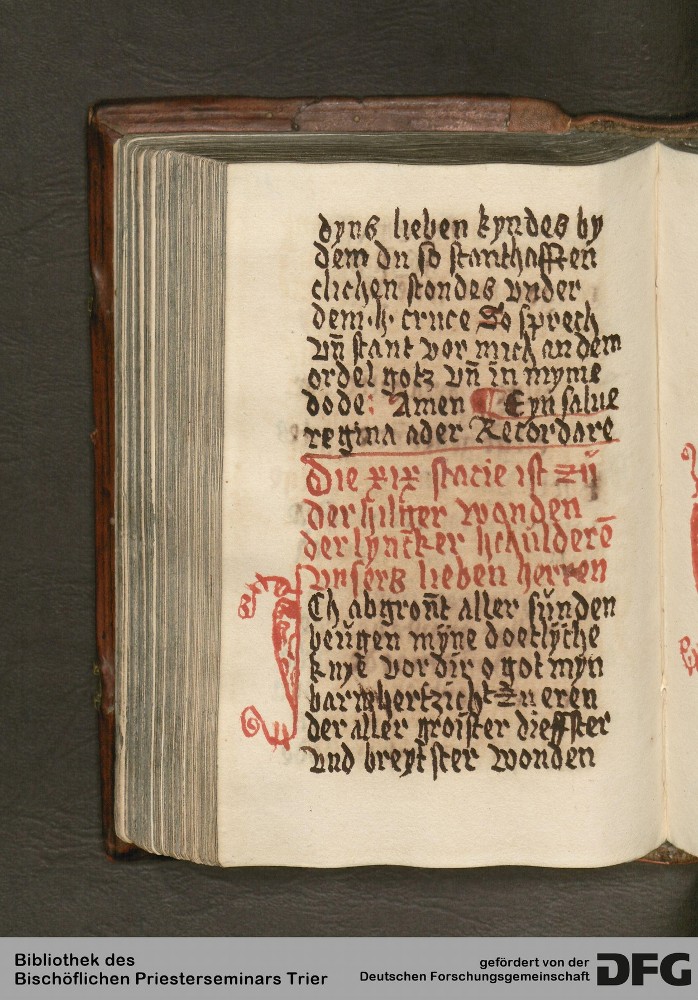 dyns lieben kyndes by
dem du so stanthafften
clichen stondes vnder
dem .h. cruce So sprech
vn̄ stant vor mich an dem
ordel gotz vn̄ in myme
dode : Amen Eyn salue
regina ader Recordare
Die xix stacie ist zů
der hilger wonden
der lyncker schulderē
vnsers lieben herren
Ich abgron̄t aller sunden
beůgen mÿne doetlÿche
knye vor dir o got myn
barmhertzicht zu eren
der aller groister dieffster
vnd breytster wonden
Bibliothek des
Bischöflichen Priesterseminars Trier
gefördert von der
Deutschen Forschungsgemeinschaft
DFG